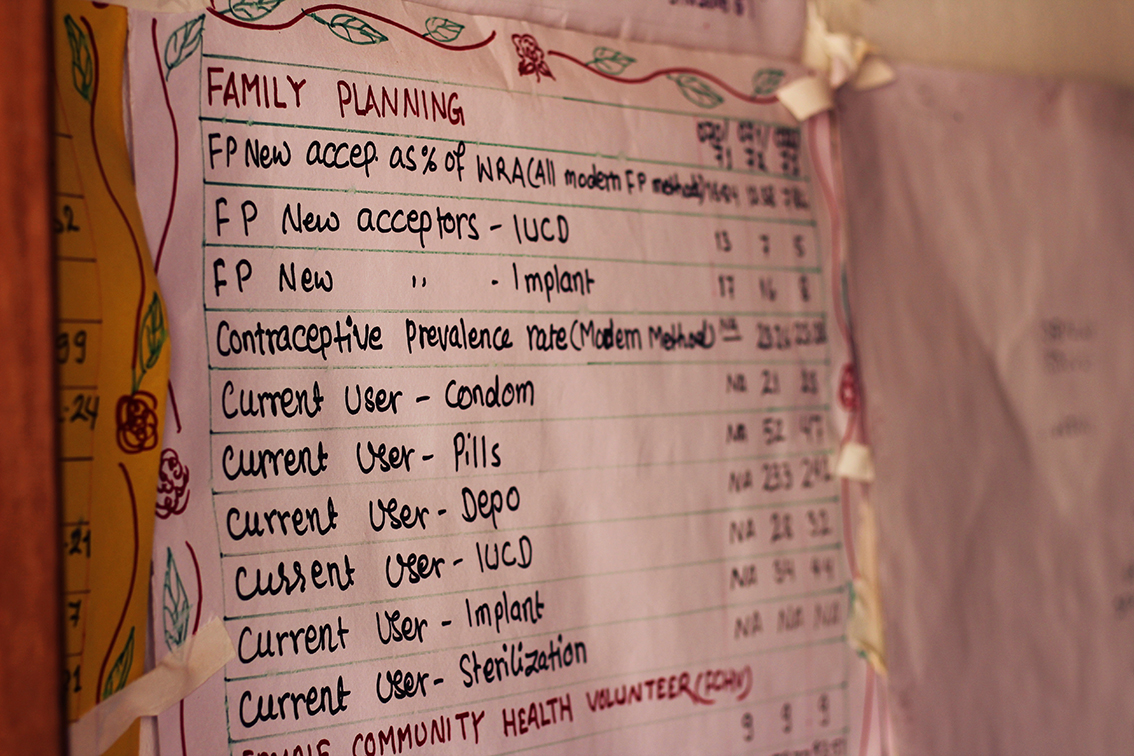 FAMILY PLANNING
070/ 071/
71 72 73
FP New accep. as % of WRA (All modern FP method)
FP New acceptors - IUCD 13 7 5
FP New " - Implant 17 16 8
Contraceptive Prevalence rate (Modern Method) NA
Current User - Condom NA 21
Current User - Pills NA 52 47
Current User - Depo NA 233
Current User - IUCD NA 28 32
Current User - Implant NA 54 44
Current User - Sterilization NA NA NA
COMMUNITY HEALTH VOLUNTEER (FCHV)
9 9 9
99
-24
-21
7